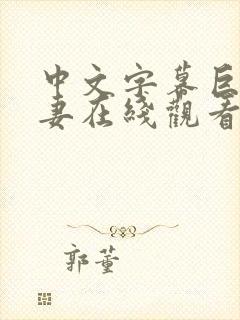 中文字幕巨
妻在綫觀看
郭董